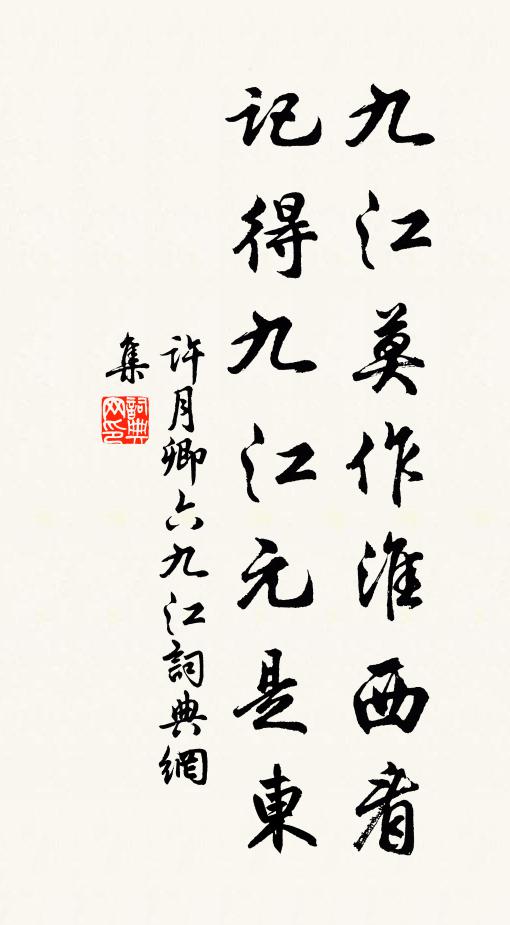 九江莫作淮西看
記得九江元是東
許月卿六九江詞典網
集
詞典網印